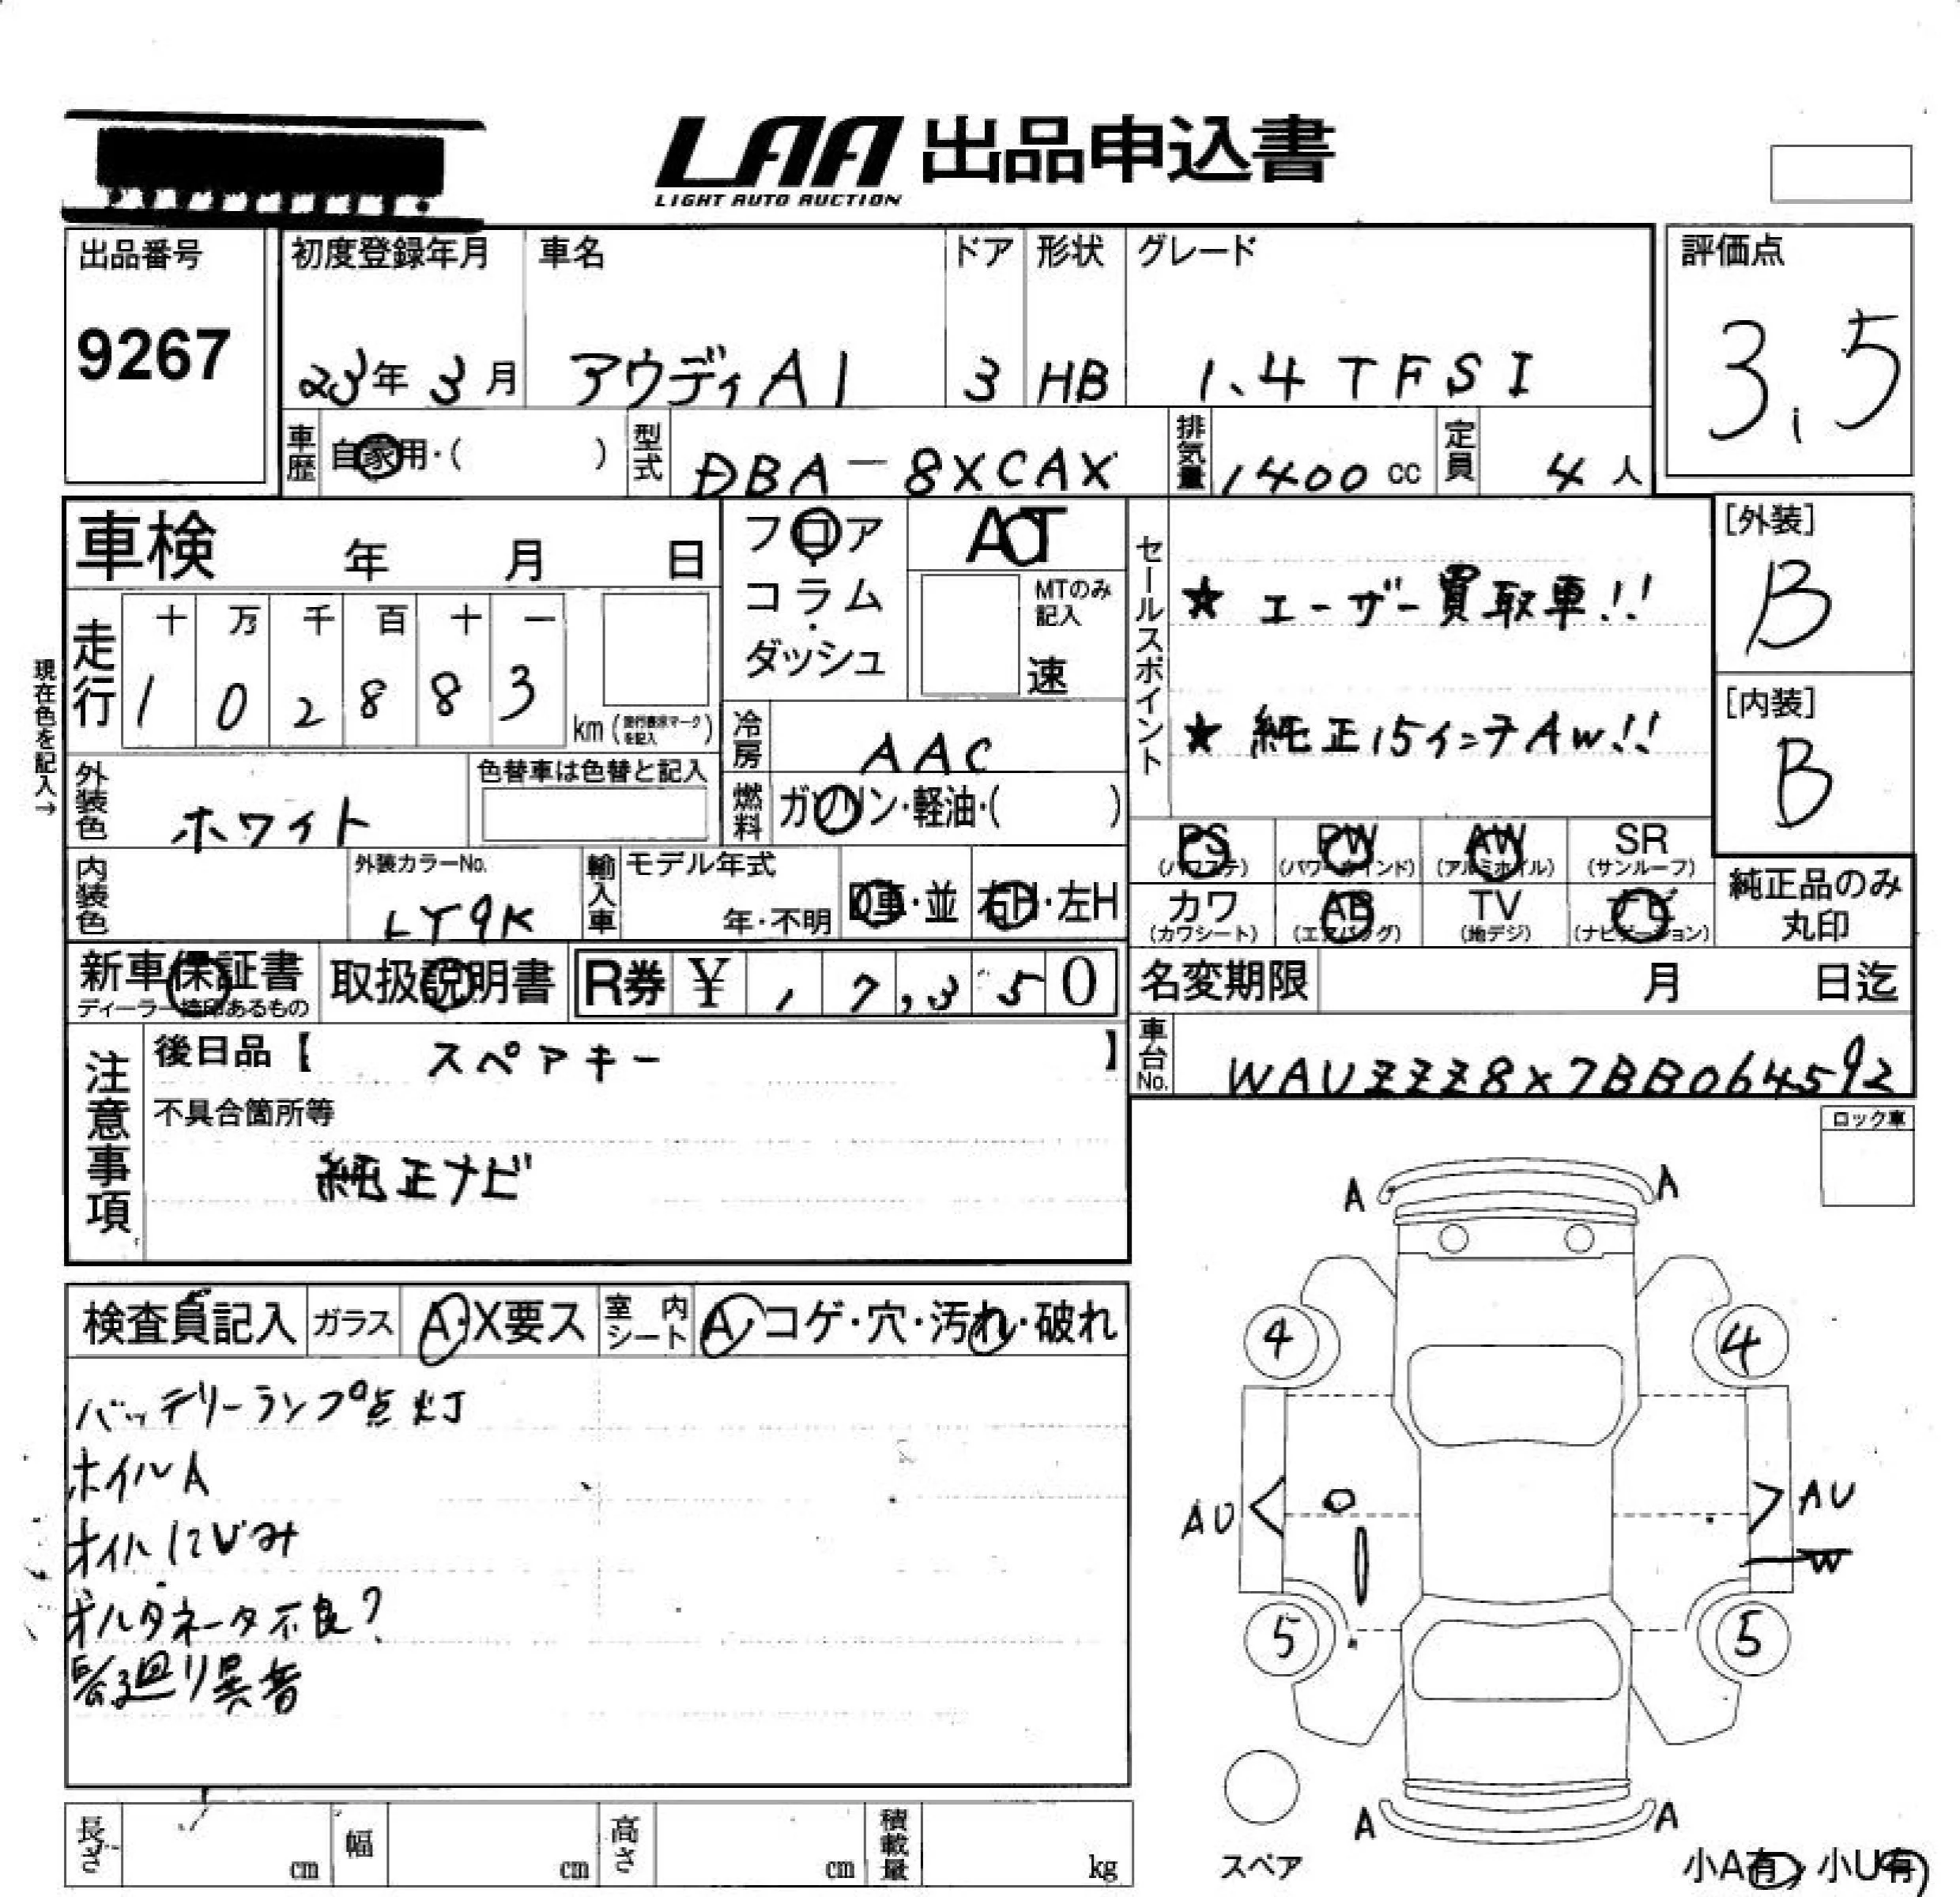 LAA 出品申込書
LIGHT AUTO AUCTION
出品番号
9267
初度登録年月
23年 3月
車名
アウディA1
ドア
3
形状
HB
グレード
1.4 TFSI
評価点
3.5
車歴 自家用・( )
型式 DBA-8XCAX
排気量 1400 cc
定員 4 人
車検 年 月 日
フロア
コラム
・
ダッシュ
AT
MTのみ
記入
速
セールスポイント
★ ユーザー買取車!!
★ 純正15インチAW!!
[外装]
B
[内装]
B
現在色を記入→
走行
十 万 千 百 十 一
1 0 2 8 8 3
km (走行表示マークを記入)
冷房 AAC
外装色 ホワイト
色替車は色替と記入
燃料 ガソリン・軽油・( )
PS (パワステ)
PW (パワーウインド)
AW (アルミホイル)
SR (サンルーフ)
カワ (カワシート)
AB (エアバッグ)
TV (地デジ)
ナビ (ナビゲーション)
純正品のみ
丸印
内装色
外装カラーNo.
LY9K
輸入車
モデル年式
年・不明
D車・並
右H・左H
新車保証書
ディーラー捺印あるもの
取扱説明書
R券 ¥ 1 7,3 5 0
名変期限 月 日迄
車台No. WAUZZZ8X7BB064592
注意事項
後日品【 スペアキー 】
不具合箇所等
純正ナビ
ロック車
検査員記入
ガラス A・X要ス
室内シート A・コゲ・穴・汚れ・破れ
バッテリーランプ点灯
ホイルA
オイルにじみ
オルタネータ不良?
廻り異音
A A
4 4
AU AU
W
5 5
A A
スペア
小A有, 小U有
長さ cm
幅 cm
高さ cm
積載量 kg